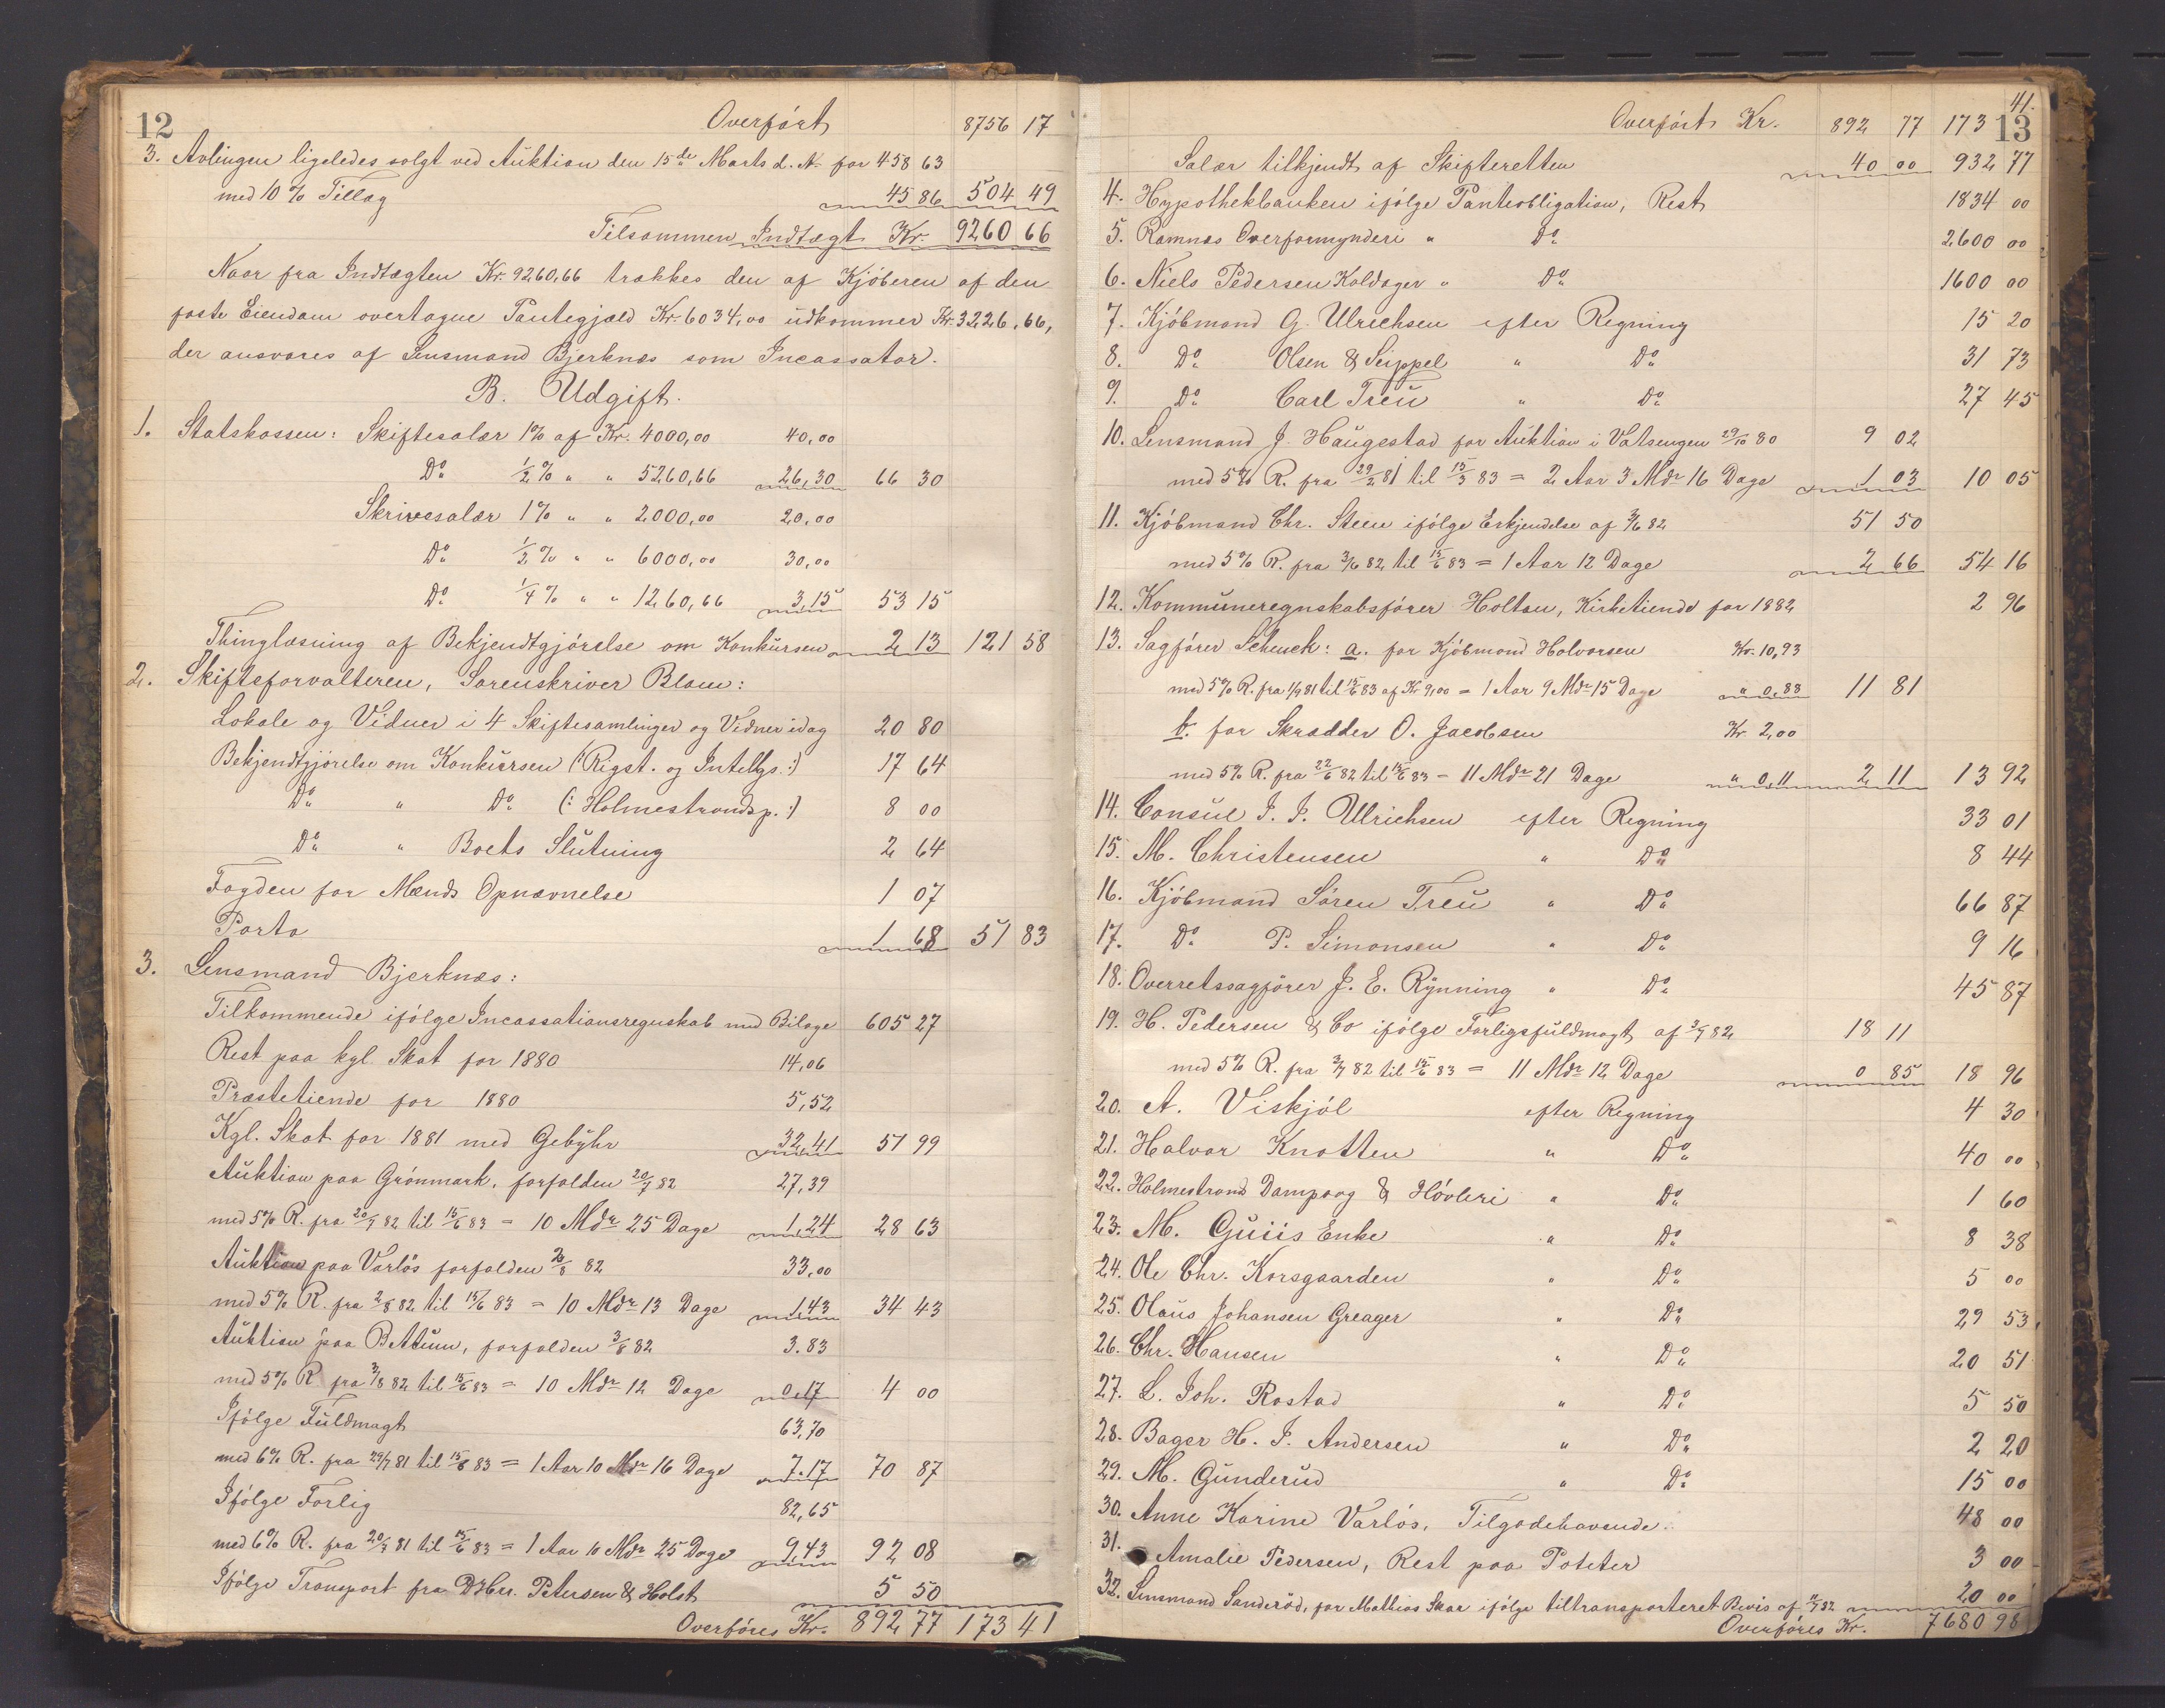 12
Overført 8756 17
3. Avlingen ligeledes solgt ved Auktion den 15de Marts d. A. for 458 63
med 10 % Tillæg 45 86 504 49
Tilsammen Indtægt Kr. 9260 66
Naar fra Indtægten Kr. 9260,66 trækkes den af Kjøberen af den
faste Eiendom overtagne Pantegjæld Kr. 6034,00 udkommer Kr. 3226,66,
der ansvares af Lensmand Bjerknæs som Incassator.
B. Udgift.
1. Statskassen: Skiftesalær 1% af Kr. 4000,00 40,00
Do ½ % " " 5260,66 26,30 66 30
Skrivesalær 1% " " 2000,00 20,00
Do ½ % " " 6000,00 30,00
Do ¼ % " " 1260,66 3,15 53 15
Thinglæsning af Bekjendtgjørelse om Konkursen 2 13 121 58
2. Skifteforvalteren, Sorenskriver Blom:
Lokale og Vidner i 4 Skiftesamlinger og Vidner idag 20 80
Bekjendtgjørelse om Konkursen (: Rigst. og Intellgs. :) 17 64
Do " Do (: Holmestrandsp. :) 8 00
Do " Boets Slutning 2 64
Fogden for Mænds Opnævnelse 1 07
Porto 1 68 51 83
3. Lensmand Bjerknæs:
Tilkommende ifølge Incassationsregnskab med Bilage 605 27
Rest paa kgl. Skat for 1880 14,06
Præstetiende for 1880 5,52
Kgl. Skat for 1881 med Gebyhr 32,41 51 99
Auktion paa Grønmark, forfalden 20/7 82 27,39
med 5% R. fra 20/7 82 til 15/6 83 = 10 Mdr 25 Dage 1,24 28 63
Auktion paa Varløs forfalden 2/8 82 33,00
med 5% R. fra 2/8 82 til 15/6 83 = 10 Mdr 13 Dage 1,43 34 43
Auktion paa Bettum, forfalden 3/8 82 3.83
med 5% R. fra 3/8 82 til 15/6 83 = 10 Mdr 12 Dage 0,17 4 00
Ifølge Fuldmagt 63,70
med 6% R. fra 29/7 81 til 15/6 83 = 1 Aar 10 Mdr 16 Dage 7.17 70 87
Ifølge Forlig 82,65
med 6% R. fra 20/7 81 til 15/6 83 = 1 Aar 10 Mdr 25 Dage 9,43 92 08
Ifølge Transport fra DHrr. Petersen & Holst 5 50
Overføres Kr. 892 77 173 41
13
Overført Kr. 892 77 173 41.
Salær tilkjendt af Skifteretten 40 00 932 77
4. Hypothekbanken ifølge Panteobligation, Rest 1834 00
5. Ramnæs Overformynderi " Do 2600 00
6. Niels Pedersen Koldager " Do 1600 00
7. Kjøbmand G. Ulrichsen efter Regning 15 20
8. Do Olsen & Seippel " Do 31 73
9. Do Carl Treu " Do 27 45
10. Lensmand J. Haugestad for Auktion i Vatsengen 29/10 80 9 02
med 5% R. fra 29/2 81 til 15/3 83 = 2 Aar 3 Mdr 16 Dage 1 03 10 05
11. Kjøbmand Chr. Steen ifølge Erkjendelse af 3/6 82 51 50
med 5% R. fra 3/6 82 til 15/6 83 = 1 Aar 12 Dage 2 66 54 16
12. Kommuneregnskabsfører Holtan, Kirketiende for 1882 2 96
13. Sagfører Schenck: a. for Kjøbmand Halvorsen Kr. 10,93
med 5% R. fra 1/9 81 til 15/6 83 af Kr 9,00 = 1 Aar 9 Mdr 15 Dage " 0,88 11 81
b. for Skrædder O. Jacobsen Kr 2,00
med 5% R. fra 22/6 82 til 15/6 83 = 11 Mdr 21 Dage " 0,11 2 11 13 92
14. Consul I. I. Ullrichsen efter Regning 33 01
15. M. Christensen " Do 8 44
16. Kjøbmand Søren Treu " Do 66 87
17. Do P. Simonsen " Do 9 16
18. Overretssagfører J. E. Rynning " Do 45 87
19. H. Pedersen & Co ifølge Forligsfuldmagt af 3/7 82 18 11
med 5% R. fra 3/7 82 til 15/6 83 = 11 Mdr 12 Dage 0 85 18 96
20. A. Viskjøl efter Regning 4 30
21. Halvor Knatten " Do 40 00
22. Holmestrands Dampsag & Høvleri " Do 1 60
23. M. Guiis Enke " Do 8 38
24. Ole Chr. Korsgaarden " Do 5 00
25. Olaus Johansen Greager " Do 29 53
26. Chr. Hansen " Do 20 51
27. L. Joh. Rostad " Do 5 50
28. Bager H. J. Andersen " Do 2 20
29. M. Gunderud " Do 15 00
30. Anne Karine Varløs, Tilgodehavende. 48 00
31. Amalie Pedersen, Rest paa Poteter 3 00
32. Lensmand Sanderød, for Mathias Skar ifølge tiltransporteret Bevis af 82 20 00
Overføres Kr. 7680 98